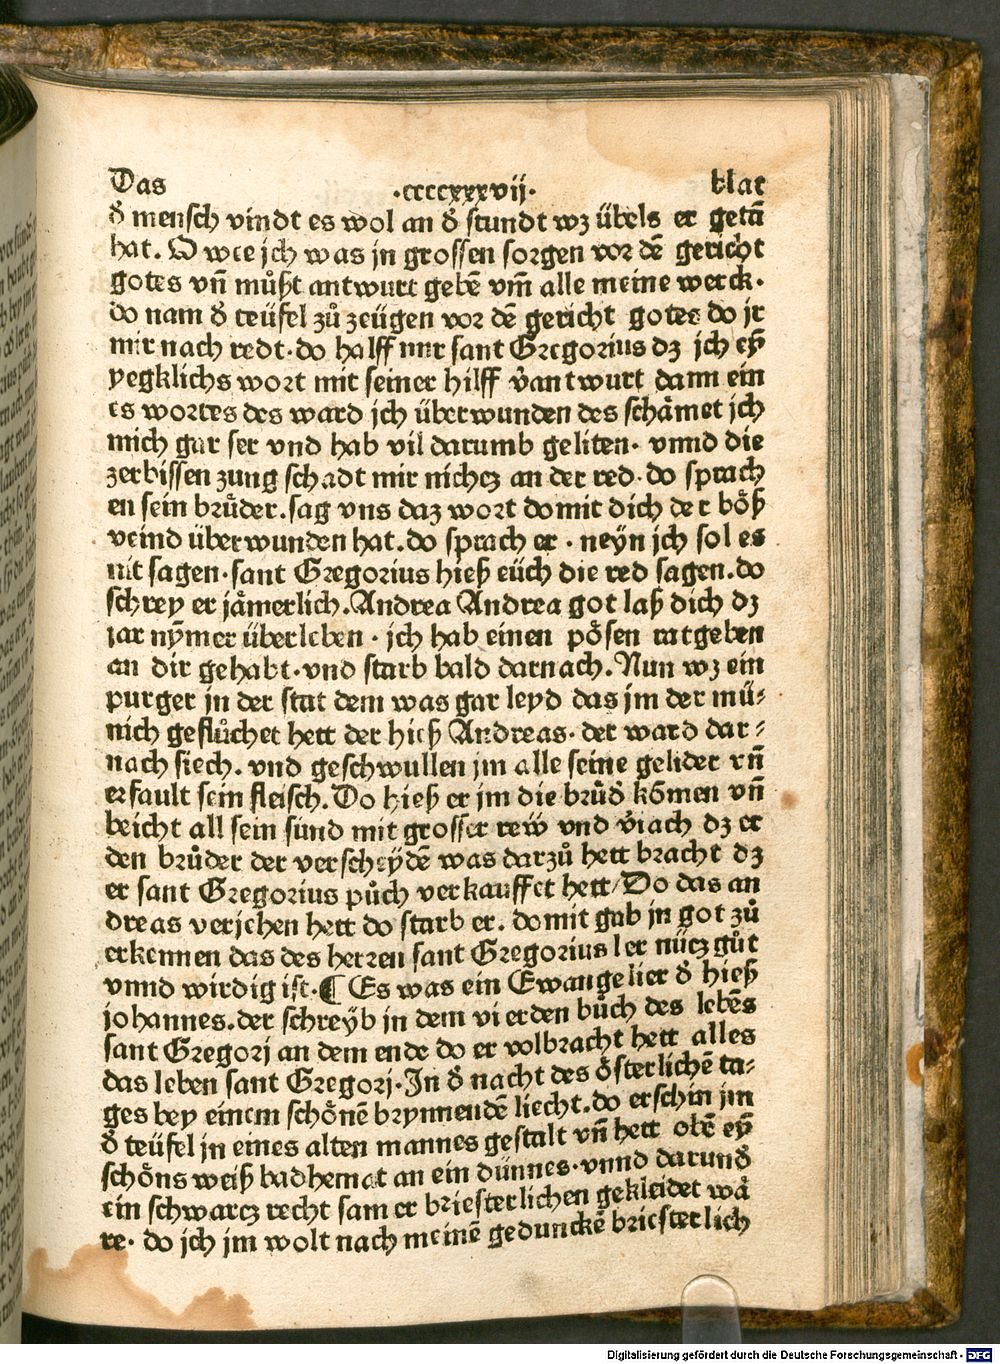 Das ·ccccxxxvij· blat
ď mensch vindt es wol an ď stundt wz übels er getā
hat. O wee jch was jn grossen sorgen vor dē gericht
gotes vñ můßt antwurt gebē vm̄ alle meine werck·
do nam ď teüfel zů zeügen vor dē gericht gotes do jr
mir nach redt·do halff mir sant Gregorius dz jch eÿ
yegklichs wort mit seiner hilff v̾antwurt dann ein
es wortes des ward jch überwunden des schåmet jch
mich gar ser vnd hab vil darumb geliten· vnnd die
zerbissen zung schadt mir nichcz an der red·do sprach
en sein brůder.sag vns daz wort domit dich der bőß
veind überwunden hat.do sprach er·neÿn jch sol es
nit sagen·sant Gregorius hieß eüch die red sagen.do
schrey er jåmerlich.Andrea Andrea got laß dich dz
jar nÿmer überleben·jch hab einen pősen ratgeben
an dir gehabt·vnd starb bald darnach.Nun wz ein
purger jn der stat dem was gar leyd das jm der mü⸗
nich geflůchet hett der hieß Andreas·der ward dar⸗
nach siech.vnd geschwullen jm alle seine gelider vñ
erfault sein fleisch.Do hieß er jm die brůď kőmen vñ
beicht all sein sünd mit grosser reẅ vnd v̾iach dz er
den brůder der verscheÿdē was darzů hett bracht dz
er sant Gregorius půch verkauffet hett/Do das an
dreas verjehen hett do starb er.domit gab jn got zů
erkennen das des herren sant Gregorius ler nücz gůt
vnnd wirdig ist·¶ Es was ein Ewangelier ď hieß
johannes.der schreÿb jn dem vierden bůch des lebēs
sant Gregorj an dem ende do er volbracht hett alles
das leben sant Gregorj·Jn ď nacht des ősterlichē ta⸗
ges bey einem schőnē brynnendē liecht.do erschin jm
ď teüfel jn eines alten mannes gestalt vñ hett obē eÿ
schőns weiß badhemat an ein dünnes·vnnd darunď
ein schwarcz recht sam er briesterlichen gekleidet wå
re·do jch jm wolt nach meinē gedunckē briesterlich
Digitalisierung gefördert durch die Deutsche Forschungsgemeinschaft - DFG